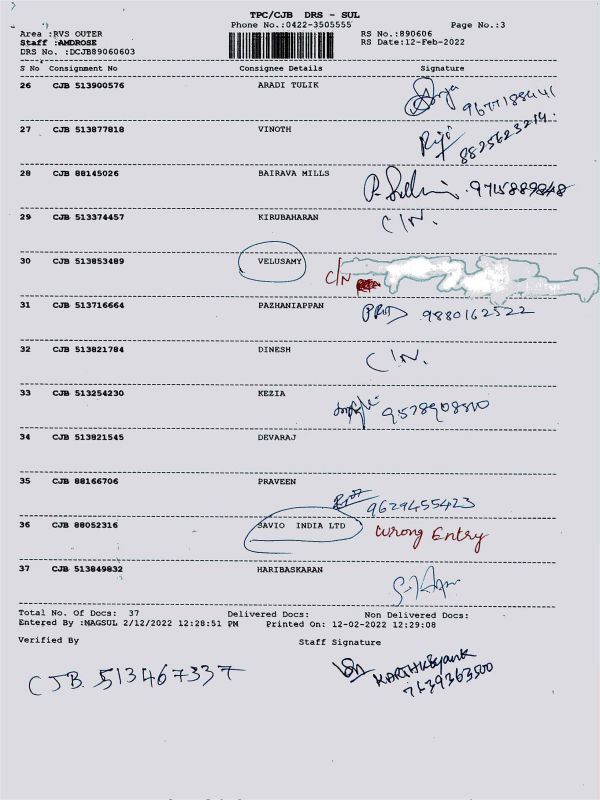 TPC/CJB DRS - SUL
Phone No.:0422-3505555 Page No.:3
Area :RVS OUTER RS No.:890606
Staff :AMDROSE RS Date:12-Feb-2022
DRS No. :DCJB89060603
S No Consignment No Consignee Details Signature
26 CJB 513900576 ARADI TULIK
9677188441
27 CJB 513877818 VINOTH
8825623214
28 CJB 88145026 BAIRAVA MILLS
29 CJB 513374457 KIRUBAHARAN C/N.
30 CJB 513853489 VELUSAMY C/N
31 CJB 513716664 PAZHANIAPPAN 9880162522
32 CJB 513821784 DINESH C/N.
33 CJB 513254230 KEZIA
34 CJB 513821545 DEVARAJ
35 CJB 88166706 PRAVEEN
9629455423
36 CJB 88052316 SAVIO INDIA LTD Wrong Entry
37 CJB 513849832 HARIBASKARAN
Total No. Of Docs: 37 Delivered Docs: Non Delivered Docs:
Entered By :MAGSUL 2/12/2022 12:28:51 PM Printed On: 12-02-2022 12:29:08
Verified By Staff Signature
CJB. 513467337
7639363500